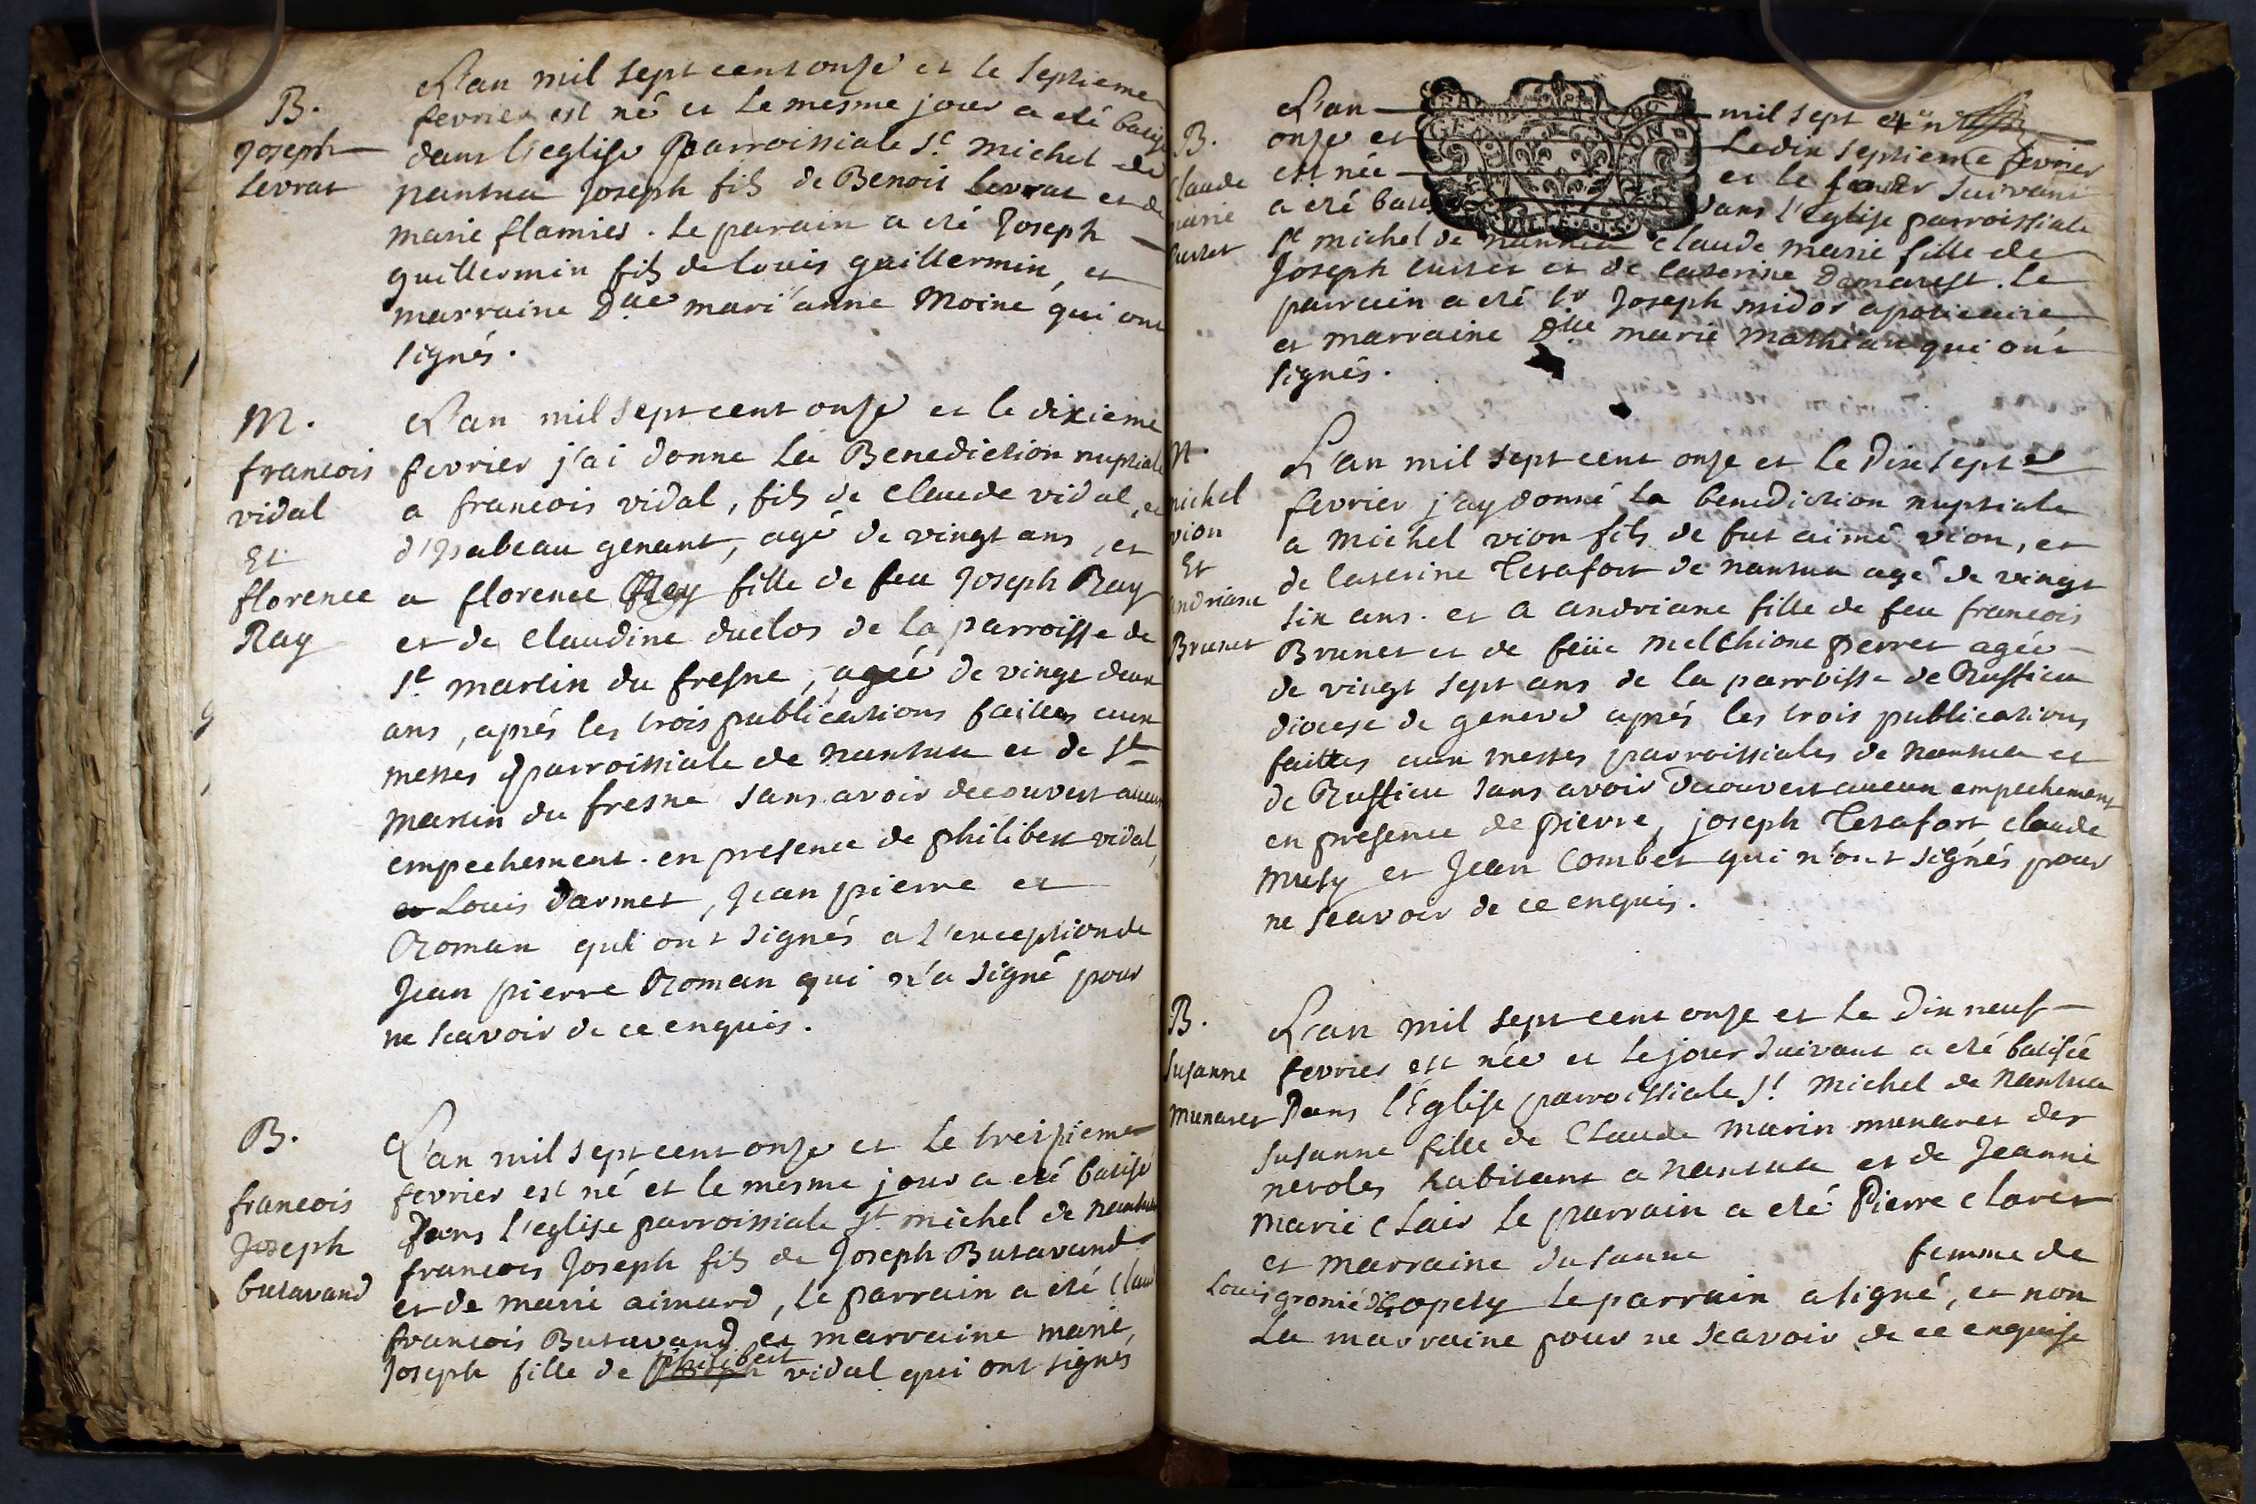 B.
Joseph
Levrat
L'an mil sept cent onse et le septieme
fevrier est né et le mesme jour a eté batisé
dans l'eglise Parroissiale St. michel de
nantua Joseph fils de Benoit Levrat et de
marie flamier. Le parain a eté Joseph
guillermin fils de Louis guillermin, et
marraine Dlle mari'anne Moine qui ont
signés.
M.
francois
vidal
Et
florence
Ray
L'an mil sept cent onse et le dixieme
fevrier j'ai donne La Benediction nuptiale
a francois vidal, fils de Claude vidal, et
d'Ysabeau genant, agé de vingt ans, et
a florence Rey fille de feu Joseph Ray
et de Claudine duclos de la parroisse de
St. martin du fresne, agée de vingt deux
ans, aprés les trois publications faittes aux
messes parroissiale de nantua et de St
Martin du fresne sans avoir decouvert aucun
empechement. en presence de philibert vidal,
et Louis Darmet, Jean pierre et
Roman qui ont signés a l'exception de
Jean pierre Roman qui n'a signé pour
ne scavoir de ce enquis.
B.
francois
Joseph
butavand
L'an mil sept cent onse et Le treisieme
fevrier est né et le mesme jour a eté batisé
Dans l'eglise parroissiale St michel de nantua
francois Joseph fils de Joseph Butavand
et de marie aimard, le parrain a eté Claude
francois Butavand et marraine marie,
Joseph fille de philibert vidal qui ont signes
B.
Claude
marie
Cursset
L'an mil sept cent
onse et Le dix septieme fevrier
est née et le jour suivant
a eté batisée dans l'eglise parroissiale
St michel de nantua Claude marie fille de
Joseph et de Caterine Domarest. Le
parrain a eté Sr Joseph midor apoticaire
et marraine Dlle marie Mathieu qui ont
signés.
M.
michel
vion
Et
andriane
Brunet
L'an mil sept cent onse et Le Dixsept
fevrier j'ay donné la benediction nuptiale
a Michel vion fils de fut aimé vion, et
de Caterine Terafort de nantua agé de vingt
six ans. et a andriane fille de feu francois
Brunet et de feüe Melchione perret agée
de vingt sept ans de la parroisse de Ruffieu
diocese de geneve aprés les trois publications
faittes aux messes parroissiales de nantua et
de Ruffieu sans avoir decouvert aucun empechement
en presence de pierre, joseph Terafort claude
Musy et Jean Combet qui n'ont signés pour
ne scavoir de ce enquis.
B.
Susanne
munaret
L'an mil sept cent onse et Le Dix neuf
fevrier est née et le jour suivant a eté batisée
Dans l'église parroissiale St. Michel de Nantua
Susanne fille de Claude marin munaret der
neroles habitant a Nantua et de Jeanne
Marie Clair le parrain a eté Pierre Claret
et marraine Susanne femme de
Louis gronié le parrain a signé, et non
La marraine pour ne scavoir de ce enquise